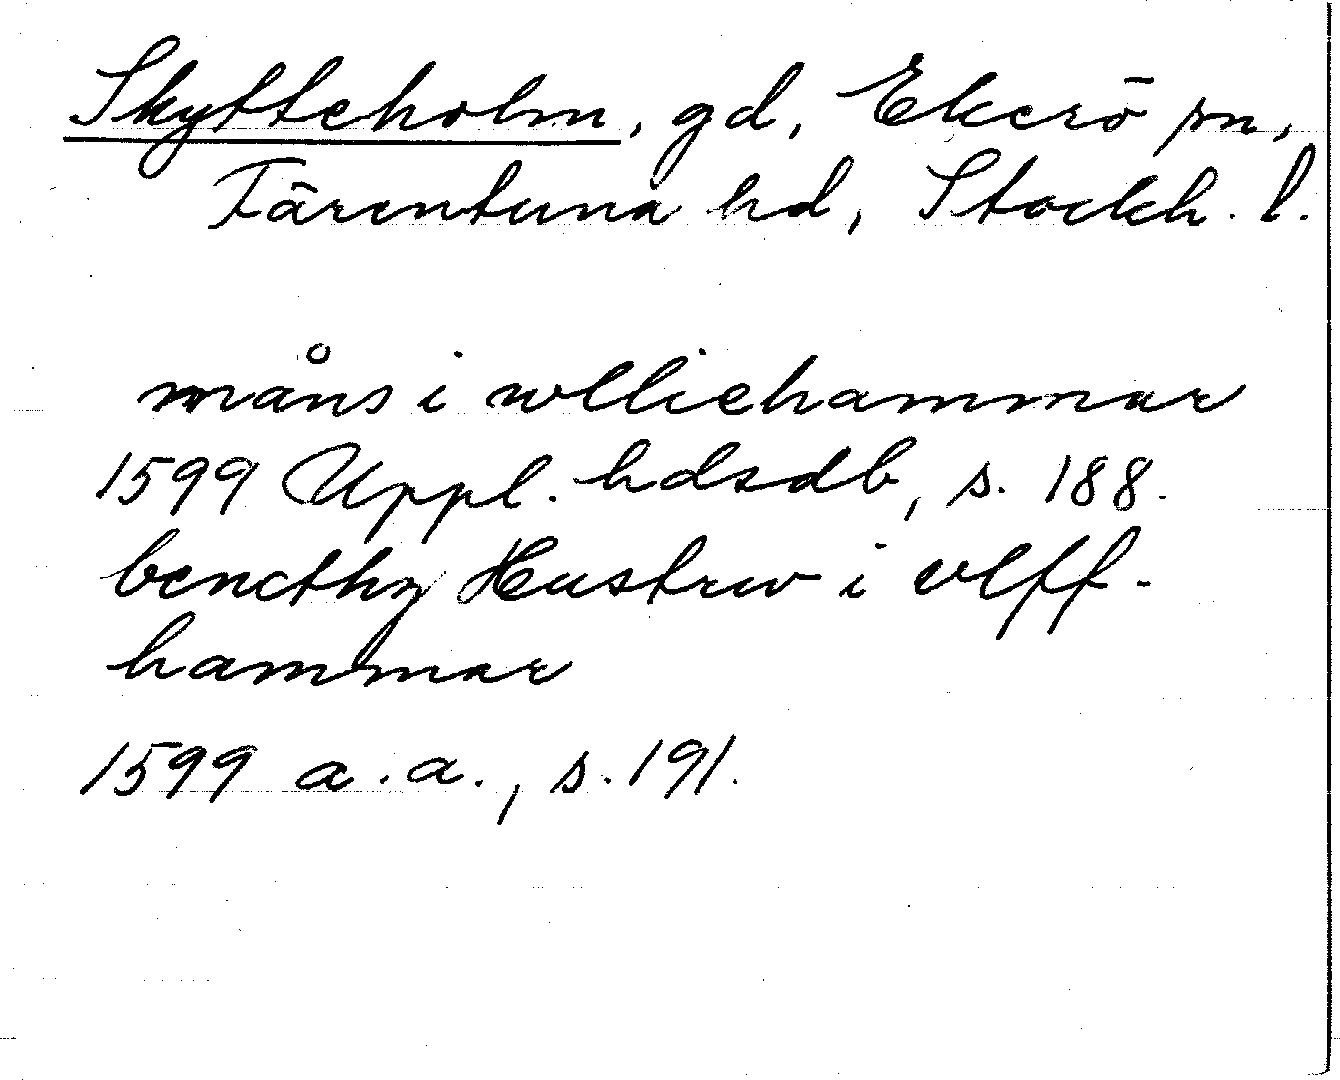 Skytteholm, gd, Ekerö sn,
Färentuna hd, Stockh. l.
måns i wlliehammar
1599 Uppl. hdsdb, s. 188.
bencthz Hustrw i vlff-
hammar
1599 a.a., s. 191.